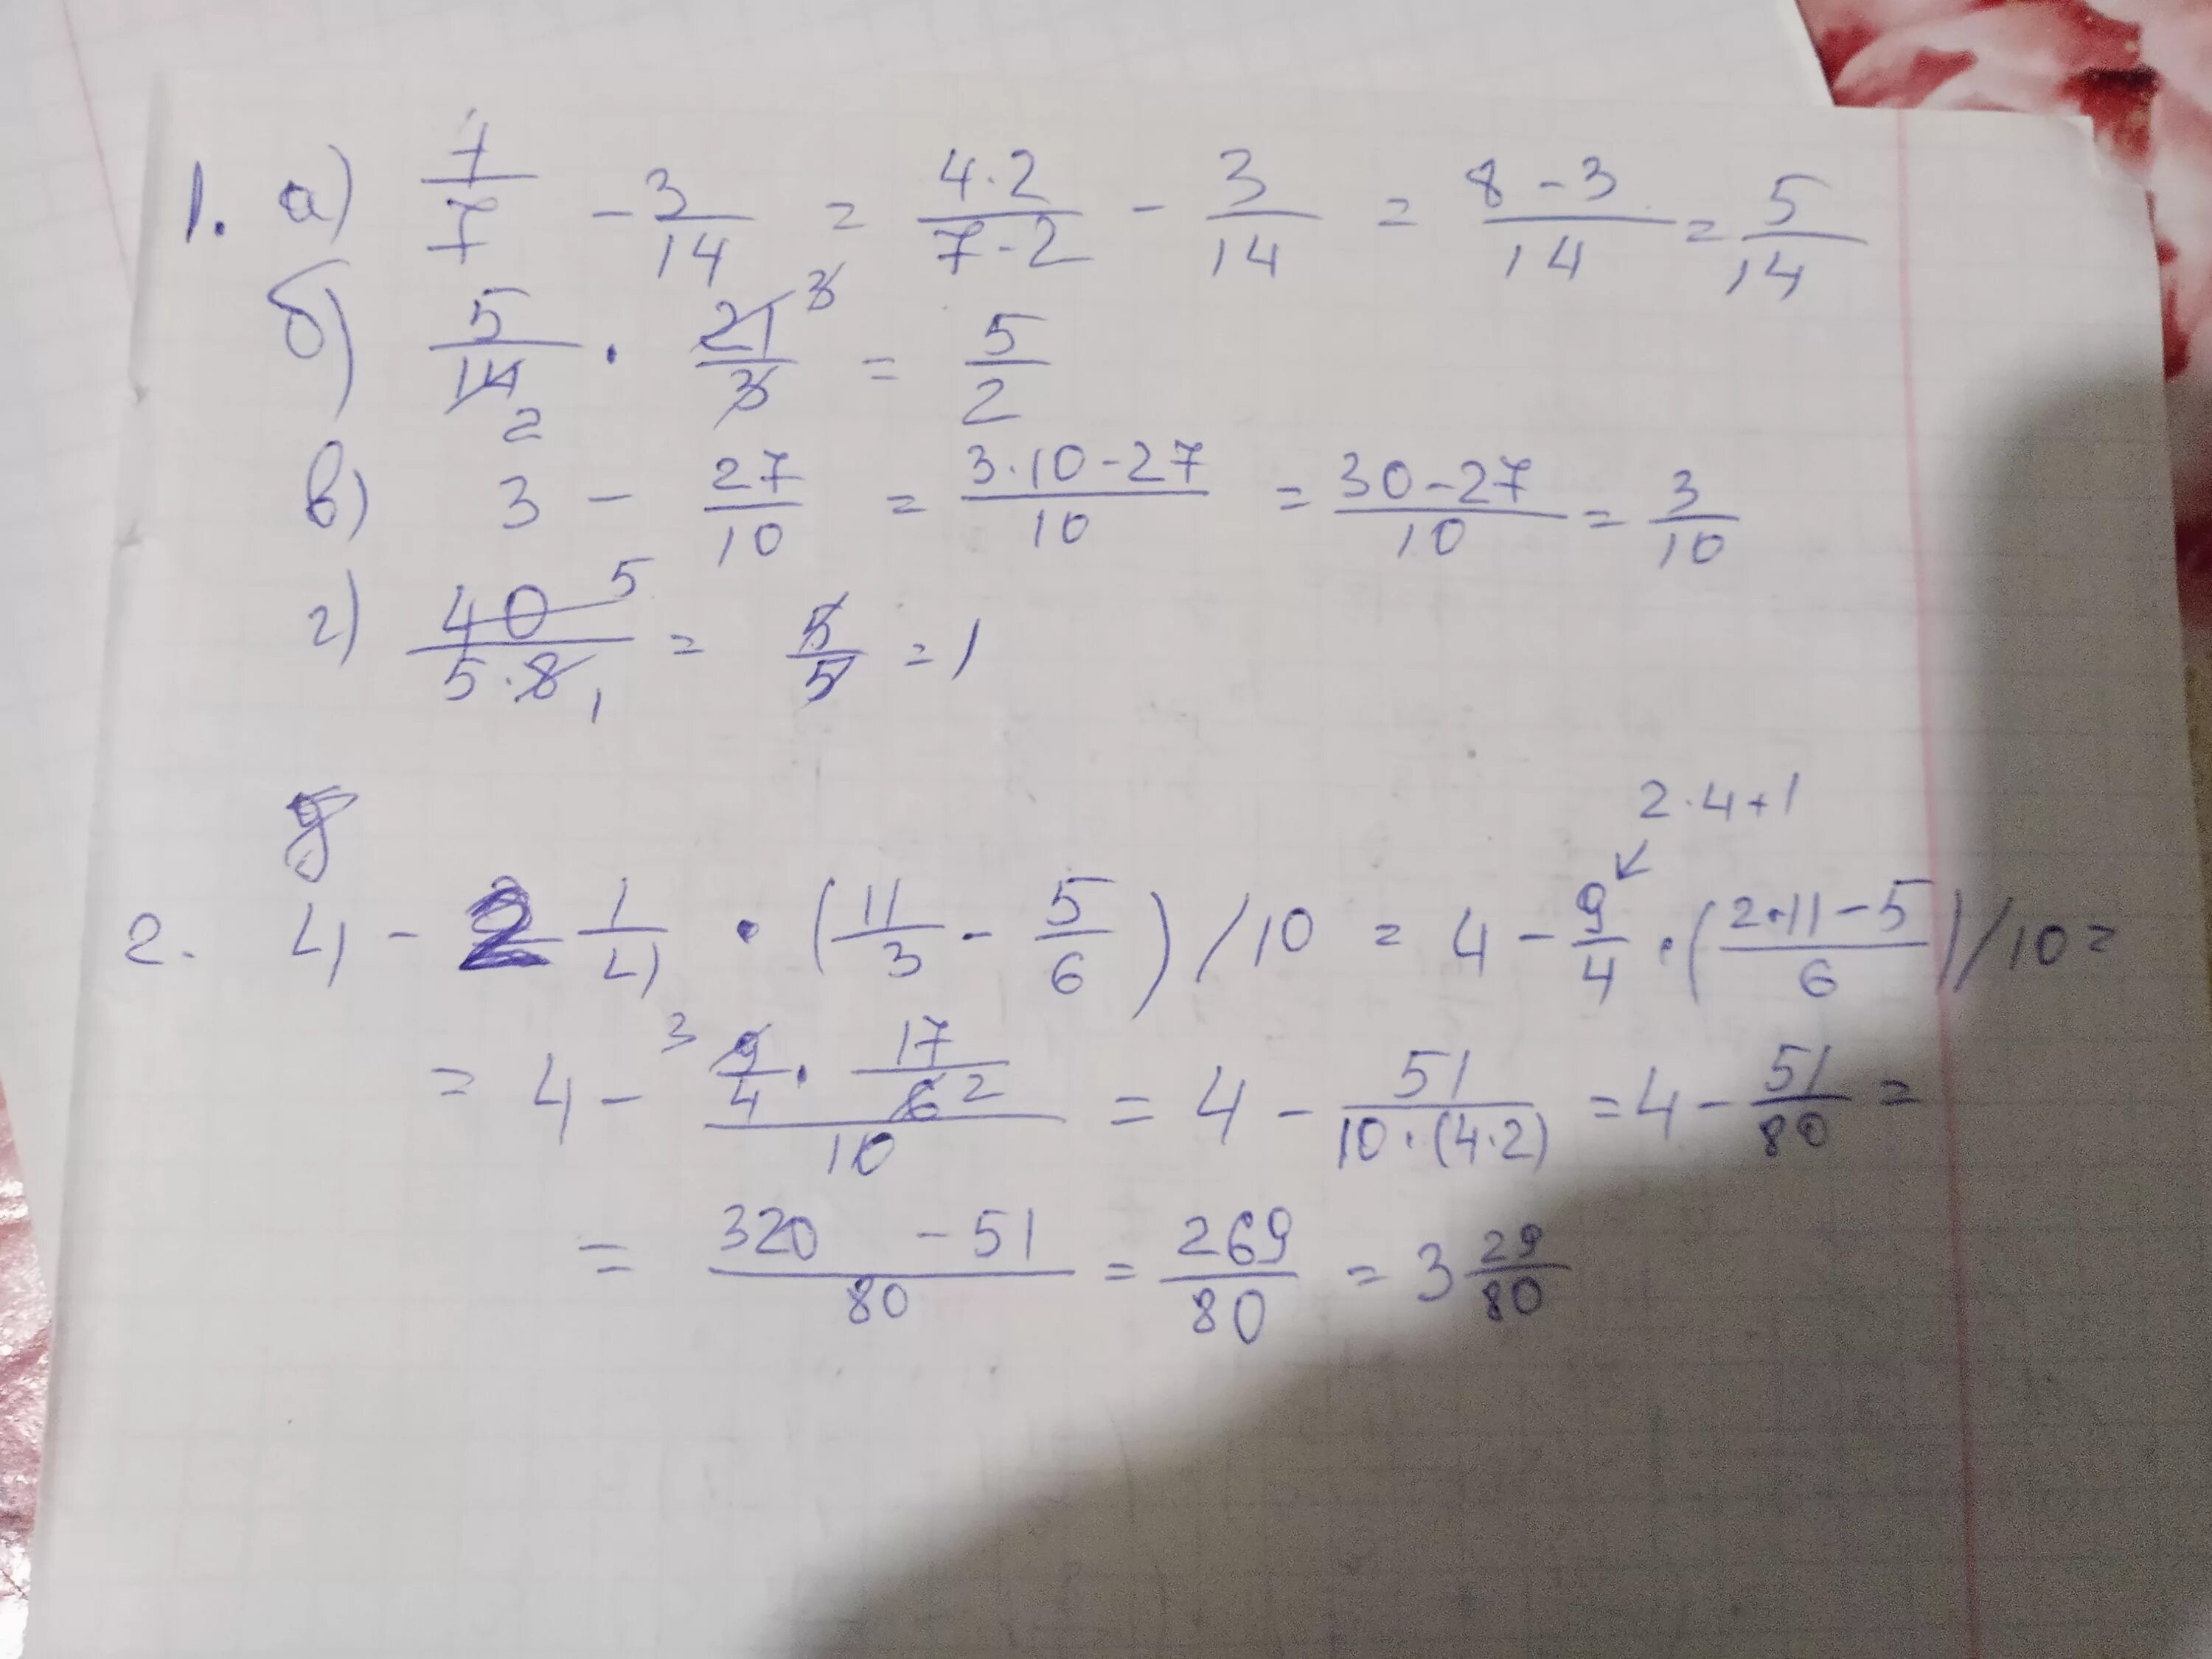 1. а) 4/7 - 3/14 = 4·2/7·2 - 3/14 = 8-3/14 = 5/14
б) 5/14 2 · 21 3/3 = 5/2
в) 3 - 27/10 = 3·10-27/10 = 30-27/10 = 3/10
г) 40 5/5·8 1 = 5/5 = 1
2·4+1
2. 4 - 2 1/4 · (11/3 - 5/6) / 10 = 4 - 9/4 · (2·11-5/6) / 10 =
= 4 - 3 9/4 · 17/6 2/10 = 4 - 51/10·(4·2) = 4 - 51/80 =
= 320 - 51/80 = 269/80 = 3 29/80